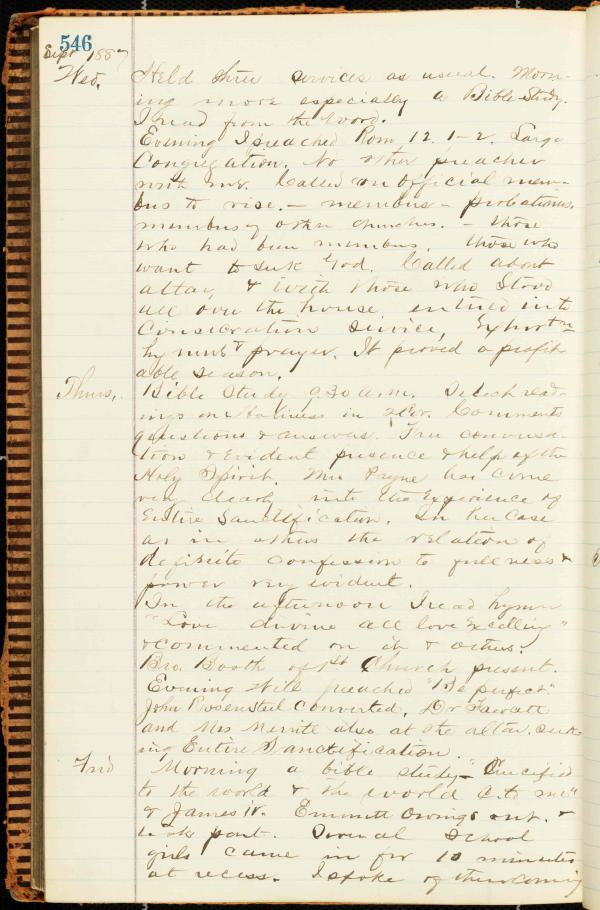 546
Sept 1887
Wed. Held three services as usual. Morn-
ing more especially a Bible Study.
I read from the Word.
Evening I preached Rom 12. 1-2. Large
Congregation. No other preacher
with me. Called on official mem-
bers to rise. - members - probationers,
members of other churches. - those
who had been members, those who
want to seek God. Called about
altar, & with those who stood
all over the house, entered into
Consecration service, Exhortn
hymns & prayer. It proved a profit-
able season.
Thurs,. Bible Study 9.30 a.m. Select read-
ings on Holiness in Comments
questions & answers. Free conversa-
tion & evident presence & help of the
Holy Spirit. Mrs Payne has come
very clearly into the Experience of
Entire Sanctification. In her case
as in others the relation of
definite confession to fullness &
power very evident.
In the afternoon I read hymn
"Love divine all love Excelling"
& commented on it & others.
Bro. Booth of 1st Church present.
Evening Will preached "Be perfect."
John Rosensteel converted, Dr Fawcett
and Mrs Merritt also at the altar, seek-
ing Entire Sanctification.
Frid Morning a bible study - "Crucified
to the world & the world C. to me"
& James IV. Emmett Owings out. &
took part. Several School
girls came in for 10 minutes
at recess. I spoke of their coming